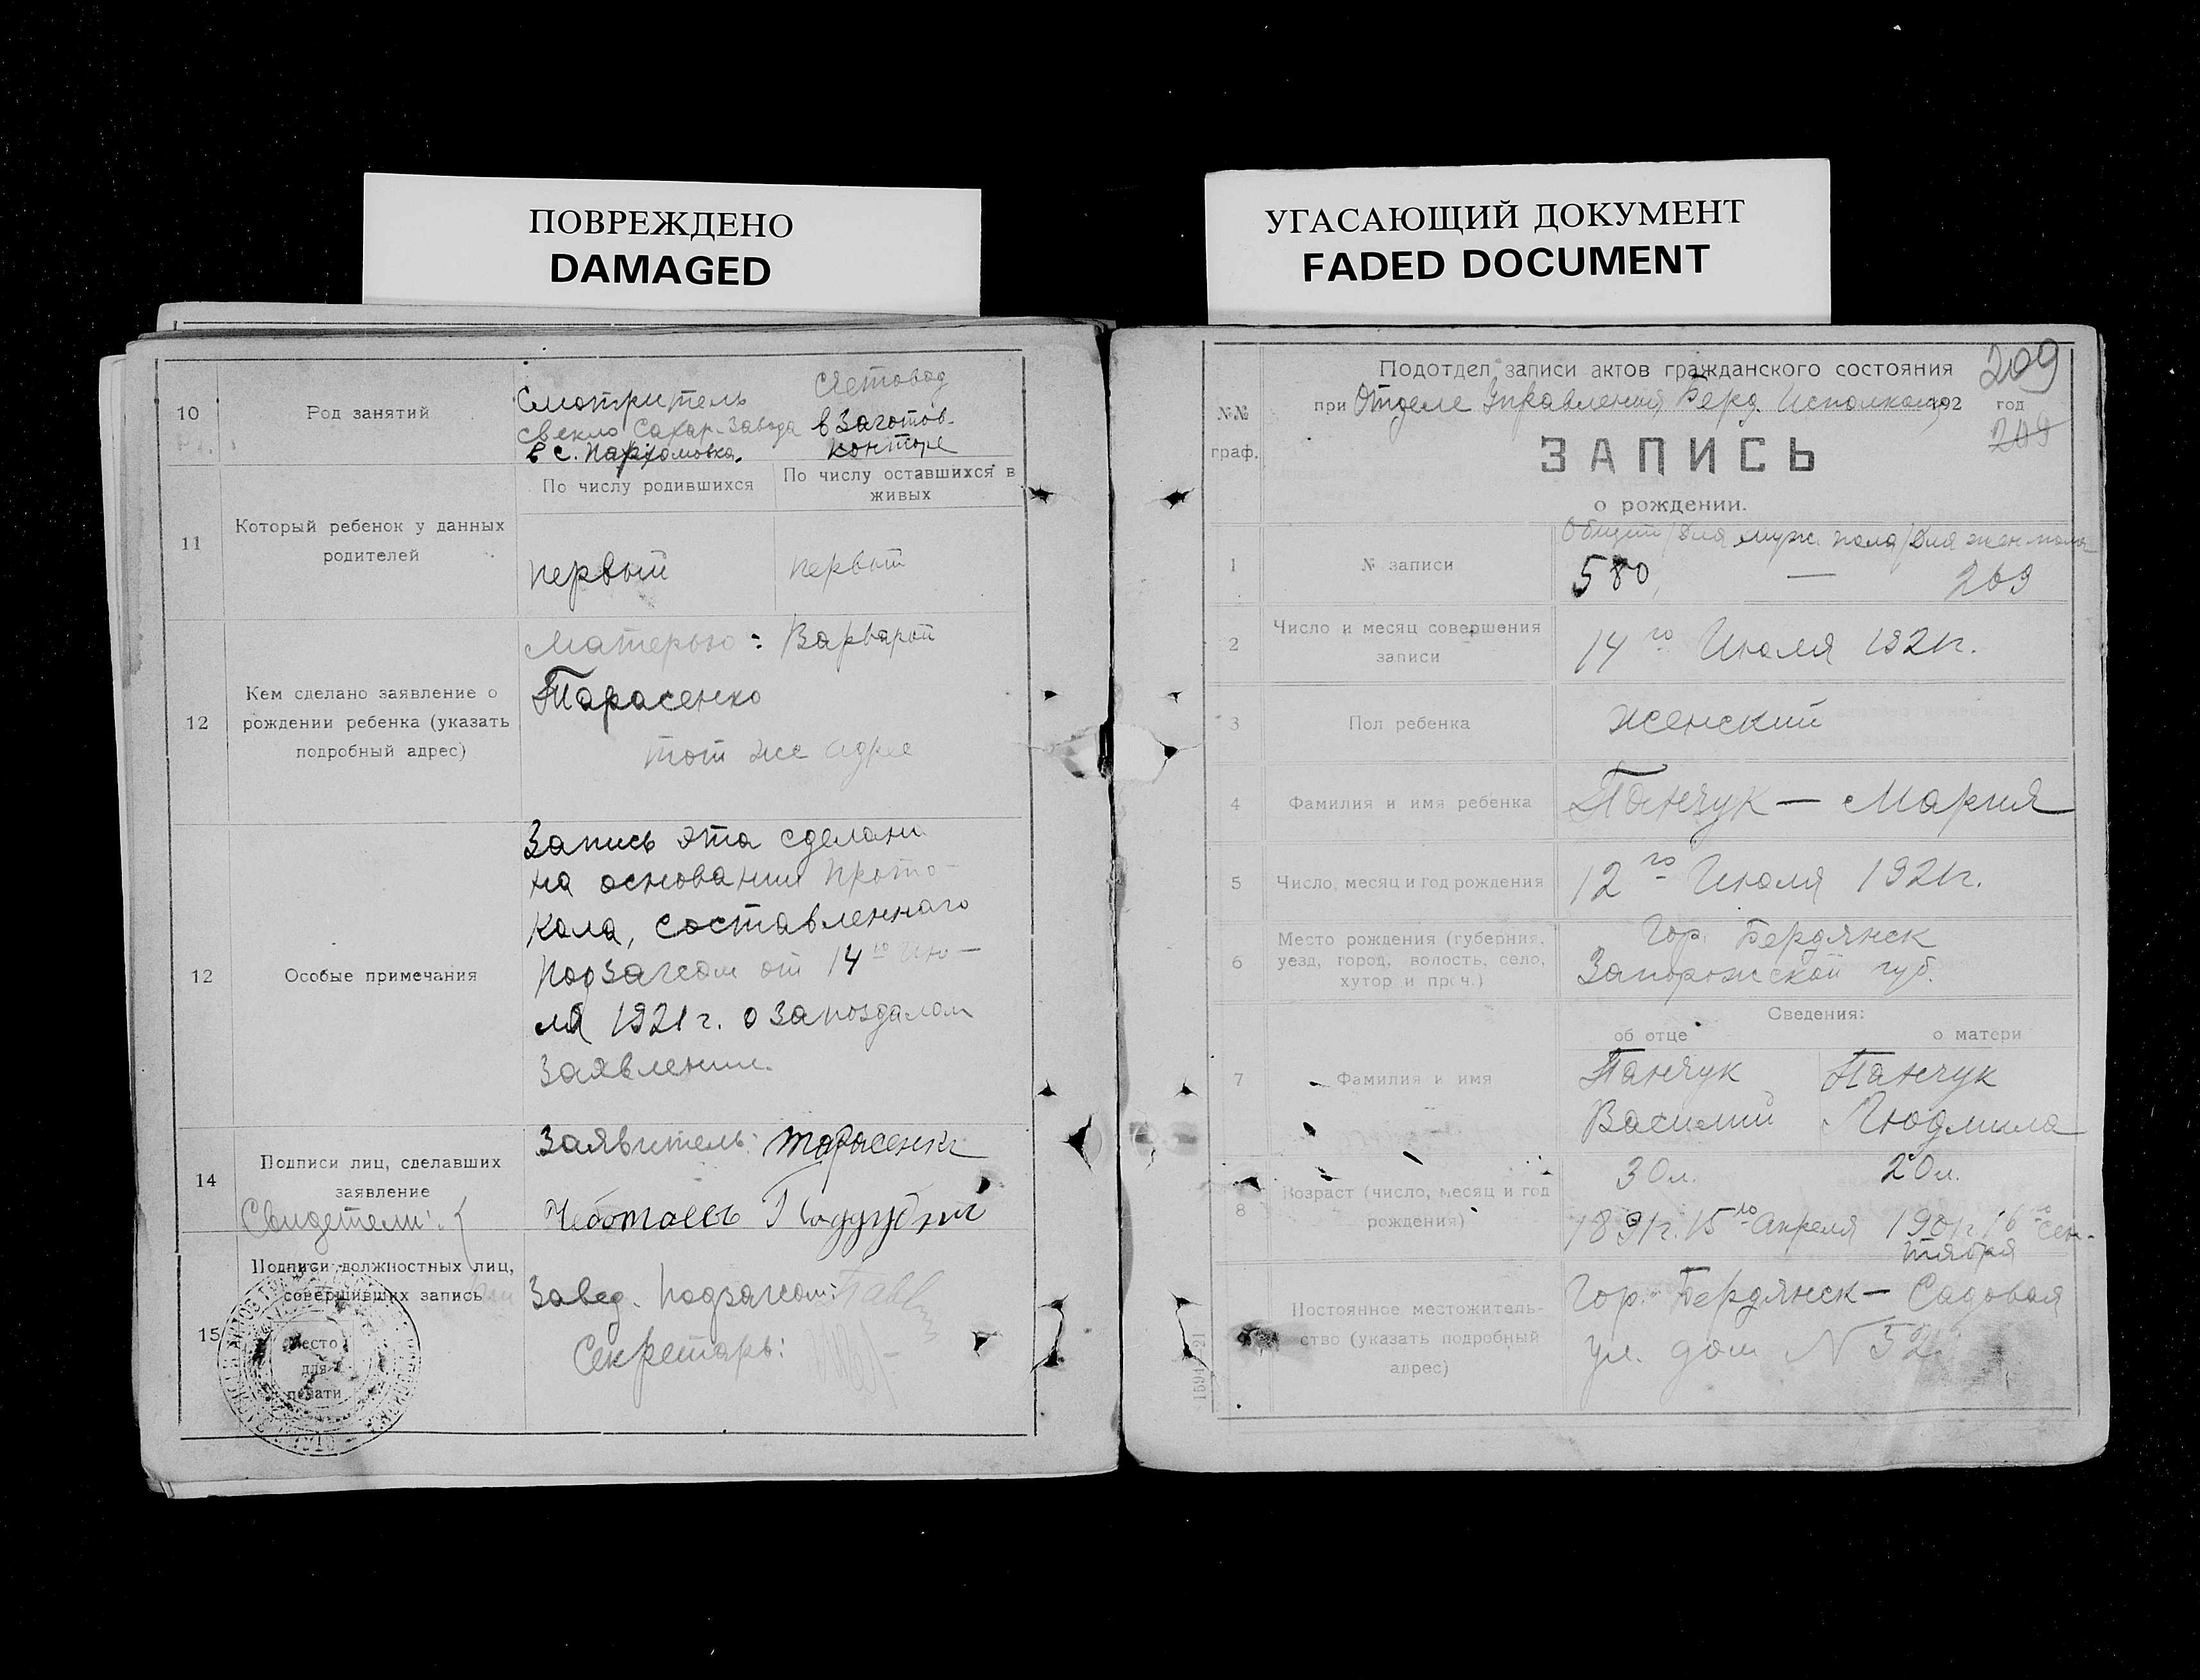 ПОВРЕЖДЕНО
DAMAGED
УГАСАЮЩИЙ ДОКУМЕНТ
FADED DOCUMENT
10
Род занятий
Смотритель
свекло сахар-завода
в с. Пархомовка.
Счетовод
в Заготов-
конторе
11
Который ребенок у данных
родителей
По числу родившихся
По числу оставшихся в
живых
первый
первый
12
Кем сделано заявление о
рождении ребенка (указать
подробный адрес)
Матерью: Варварой
Тарасенко
тот же адрес
12
Особые примечания
Запись эта сделана
на основании прото-
кола, составленнаго
подзагсом от 14го Ию-
ля 1921 г. о запоздалом
заявлении.
14
Подписи лиц, сделавших
заявление
Свидетели:
Заявитель: Тарасенко
15
Подписи должностных лиц,
совершивших запись
Место
для
печати
Завед. подзагсом:
Секретарь:
209
№№
граф.
Подотдел записи актов гражданского состояния
при Отделе Управления Берд. Исполкома 192 год
209
ЗАПИСЬ
о рождении.
1
№ записи
Общий/Для муж. пола/Для жен. пола
580, — 209
2
Число и месяц совершения
записи
14го Июля 1921г.
3
Пол ребенка
женский
4
Фамилия и имя ребенка
Панчук — Мария
5
Число, месяц и год рождения
12го Июля 1921г.
6
Место рождения (губерния,
уезд, город, волость, село,
хутор и проч.)
Гор. Бердянск
Запорожской губ.
Сведения:
об отце
о матери
7
Фамилия и имя
Панчук
Василий
Панчук
Людмила
8
Возраст (число, месяц и год
рождения)
30л.
1891г. 15го Апреля
20л.
1901г. 16го Сен-
тября
Постоянное местожитель-
ство (указать подробный
адрес)
Гор. Бердянск — Садовая
ул. дом N 52